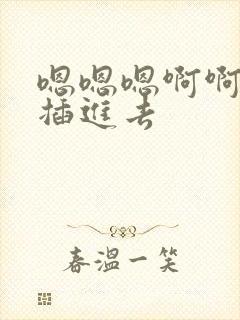 嗯嗯嗯啊啊
插進去
春溫一笑